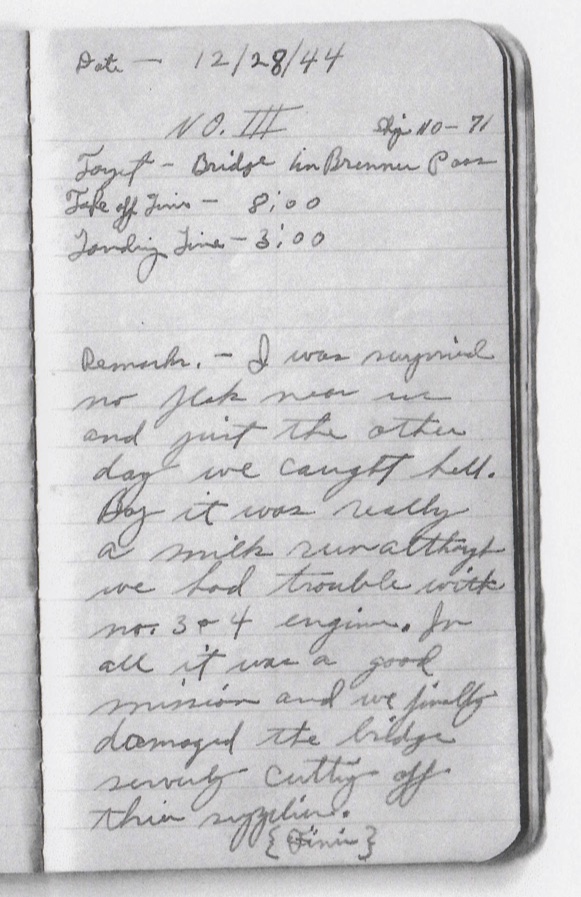 Date — 12/28/44
NO. III Ship NO-71
Target - Bridge in Brenner Pass
Take off Time - 8:00
Landing Time - 3:00
Remarks. - I was surprised
no flak near us
and just the other
day we caught hell.
Boy it was really
a milk run although
we had trouble with
no. 3 & 4 engine. In
all it was a good
mission and we finally
damaged the bridge
severly cutting off
thier supplies.
{Finis}